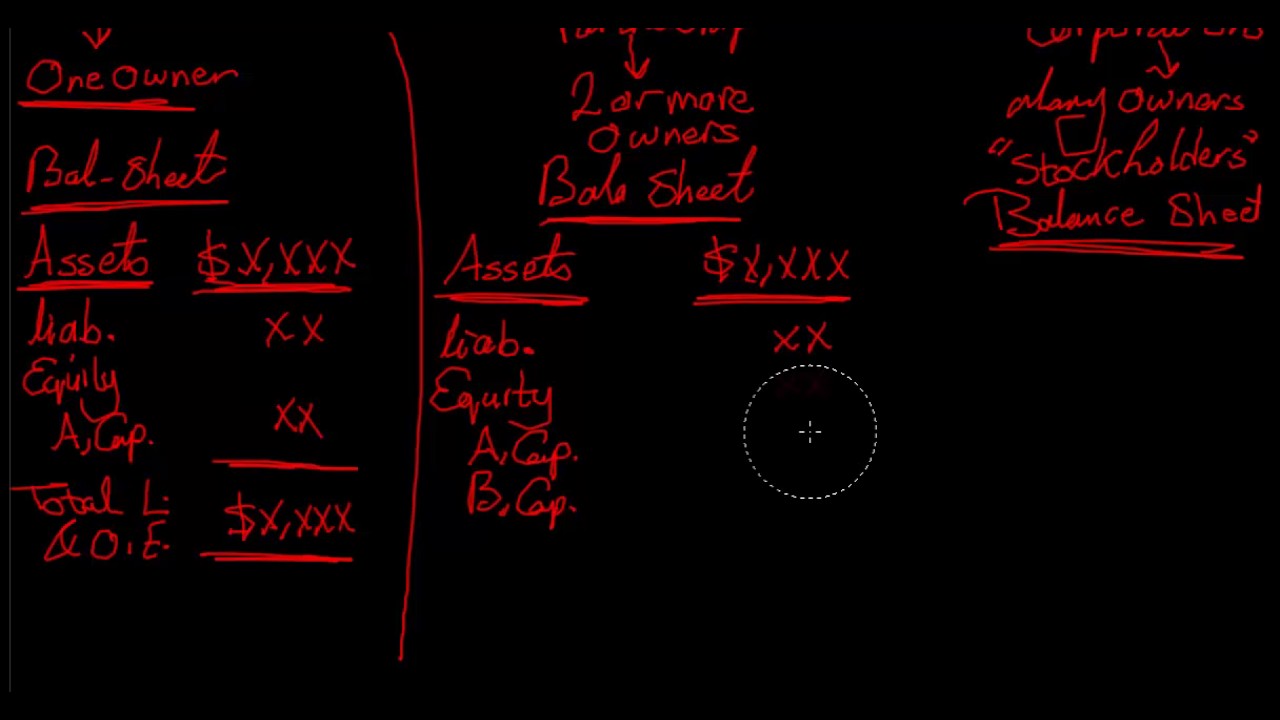 One Owner
Bal-Sheet
Assets $X,XXX
liab. XX
Equity
A, Cap. XX
Total L.
& O.E. $X,XXX
2 or more
owners
Bala Sheet
Assets $X,XXX
liab. XX
Equity
A, Cap.
B, Cap.
Many Owners
"Stockholders"
Balance Sheet